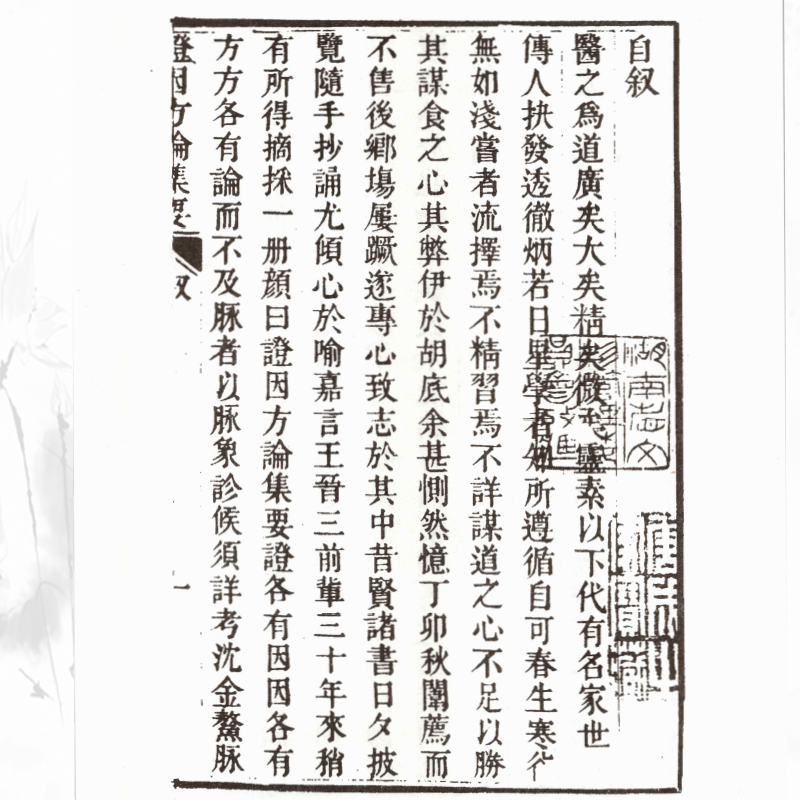 自叙
醫之爲道廣矣大矣精矣微矣靈素以下代有名家世
傳人抉發透徹炳若日星學者知所遵循自可春生寒谷
無如淺嘗者流擇焉不精習焉不詳謀道之心不足以勝
其謀食之心其弊伊於胡底余甚惻然憶丁卯秋闈薦而
不售後鄉塲屢蹶遂專心致志於其中昔賢諸書日夕披
覽隨手抄誦尤傾心於喻嘉言王晉三前軰三十年來稍
有所得摘採一册顔曰證因方論集要證各有因因各有
方方各有論而不及脉者以脉象診候須詳考沈金鰲脉
證因方論集要
叙
一
湖南志文